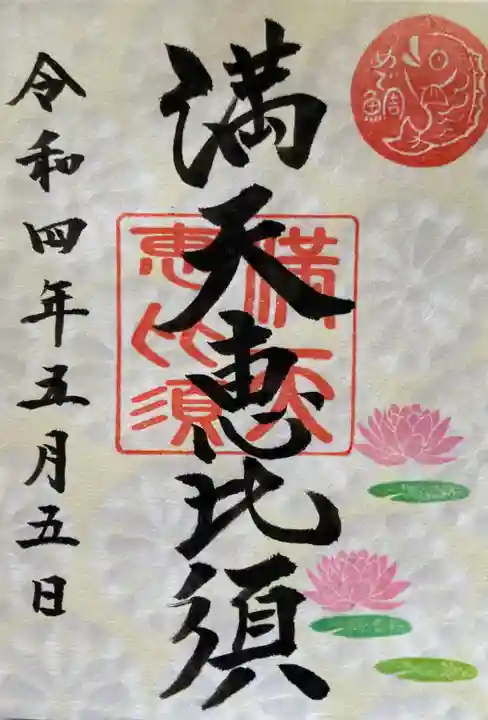 めで鯛
満天恵比須
満天恵比須
令和四年五月五日